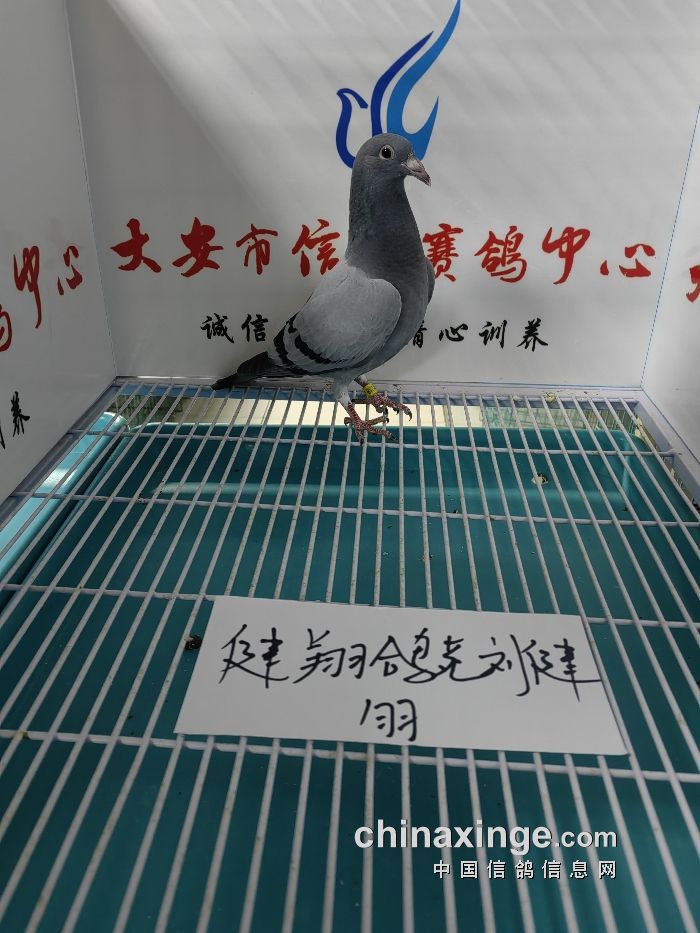 大安市信
赛鸽中心
诚信
精心训养
中心
养
健翔鸽苑刘健
翔
chinaxinge.com
中国信鸽信息网